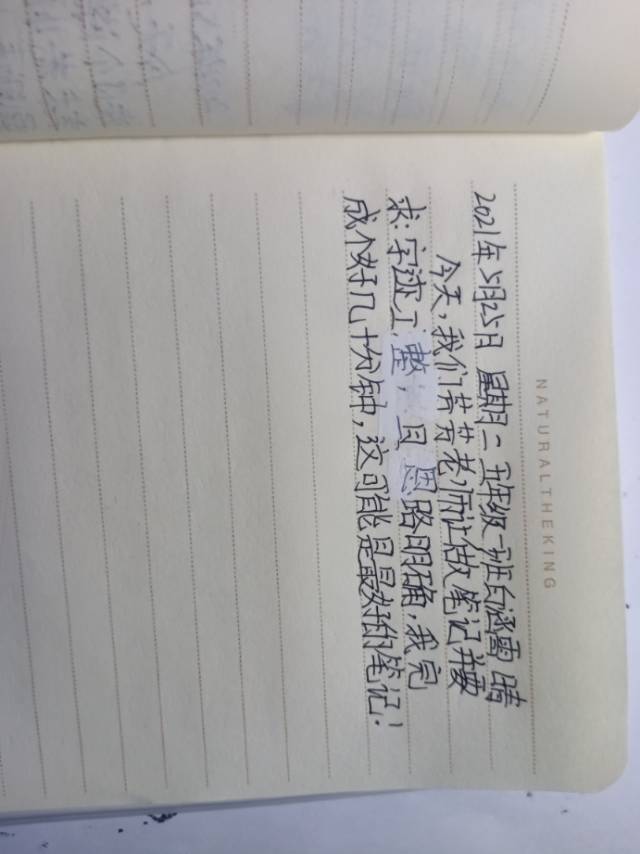 NATURALTHEKING
2021年5月25日 星期二 五年级一班 涵雷 晴
今天,我们芳芳老师让做笔记并要
求:字迹工整,且思路明确,我完
成个好几十分钟,这可能是最好的笔记!